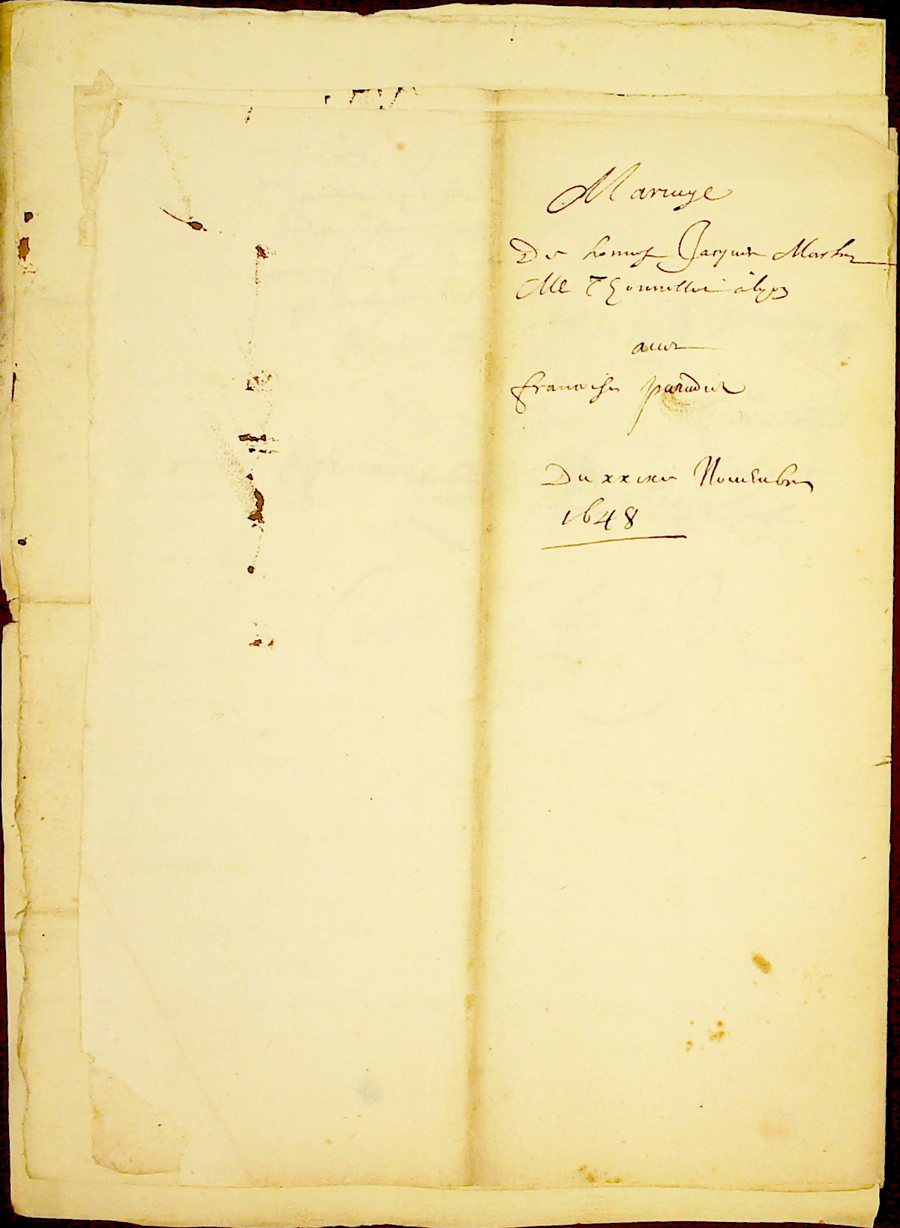 Mariage
De honneste Jacques
Me Thonnellier à lyon
avec
francoise paradis
Du xxixe Novembre
1648